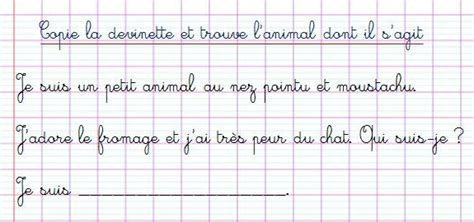 Copie la devinette et trouve l'animal dont il s'agit
Je suis un petit animal au nez pointu et moustachu.
J'adore le fromage et j'ai très peur du chat. Qui suis-je ?
Je suis ____________________.